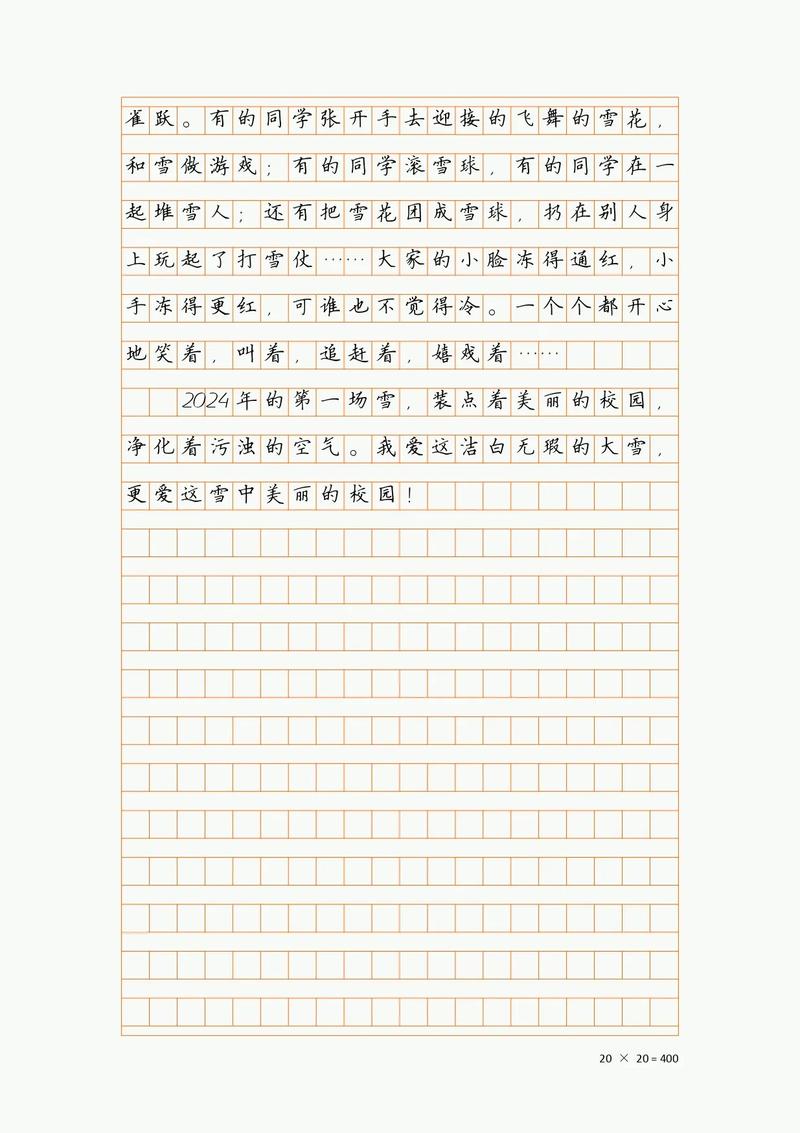 雀跃。有的同学张开手去迎接的飞舞的雪花，
和雪做游戏；有的同学滚雪球，有的同学在一
起堆雪人；还有把雪花团成雪球，扔在别人身
上玩起了打雪仗……大家的小脸冻得通红，小
手冻得更红，可谁也不觉得冷。一个个都开心
地笑着，叫着，追赶着，嬉戏着……
2024年的第一场雪，装点着美丽的校园，
净化着污浊的空气。我爱这洁白无瑕的大雪，
更爱这雪中美丽的校园！
20 × 20=400